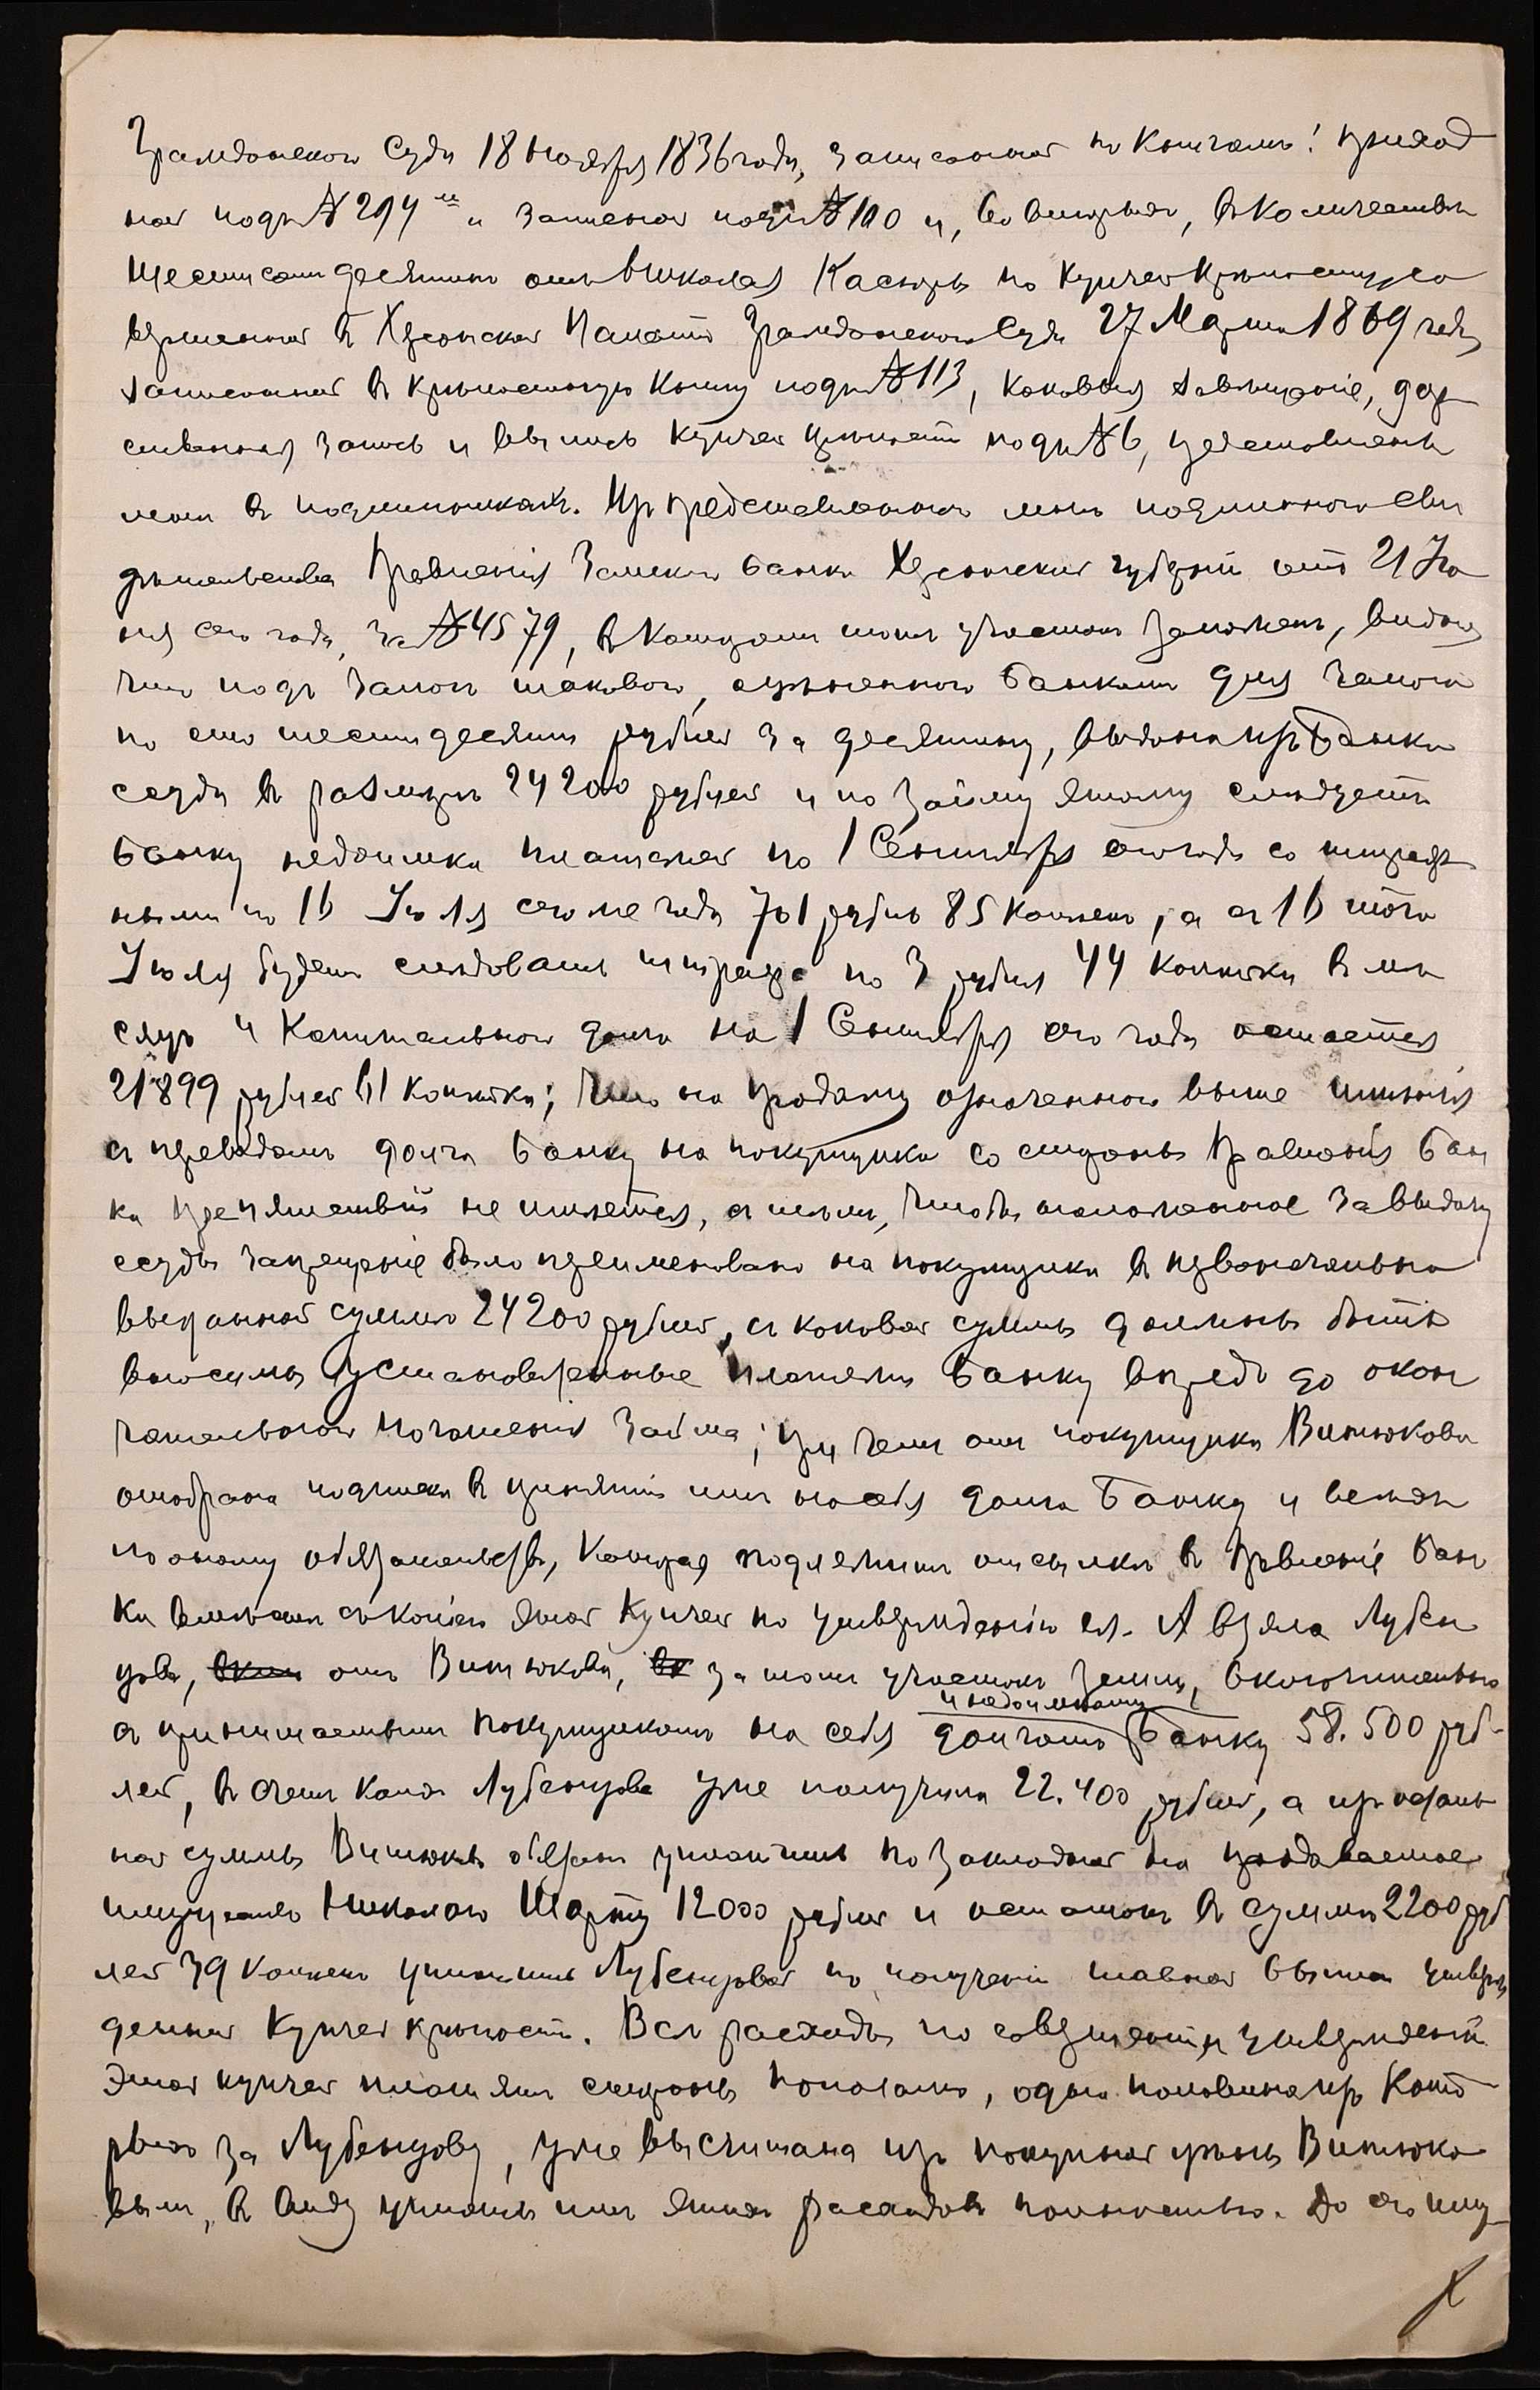 Гражданскаго Суда 18 Ноября 1836 года, записанной по книгамъ: приход
ной подъ № 294 м и записной подъ № 100 и, во вторыхъ, въ количествѣ
шестисотъ десятинъ отъ Николая Касюры по купчей крѣпости, со
вершенной въ Херсонской Палатѣ Гражданскаго Суда 27 Марта 1869 года,
записанной въ крѣпостную книгу подъ № 113, каковыя завѣщаніе, дар
ственная запись и выпись купчей крѣпости подъ № 6, представлены
мнѣ въ подлинникахъ. Изъ представленнаго мнѣ подлиннаго сви
дѣтельства Правленія Земскаго Банка Херсонской губерніи отъ 21 Ію
ня сего года, за № 4579, въ которомъ тотъ участокъ заложенъ, видно,
что подъ залогъ таковаго, оцѣненнаго Банкомъ для залога
по сто шестидесяти рублей за десятину, выдана изъ Банка
ссуда въ размѣрѣ 24200 рублей и по займу этому слѣдуетъ
Банку недоимки платежей по 1 Сентября сего года со штраф
ными по 16 Іюля сего же года 761 рубль 85 копѣекъ, а съ 16 того
Іюля будетъ слѣдовать штрафа по 3 рубля 44 копѣйки въ мѣ
сяцъ и капитальнаго долга на 1 Сентября сего года остается
21899 рублей 61 копѣйка; что на продажу означеннаго выше имѣнія
съ переводомъ долга Банку на покупщика со стороны Правленія Бан
ка препятствій не имѣется, съ тѣмъ, чтобы наложенное за выдачу
ссуды запрещеніе было переименовано на покупщика въ первоначально
выданной суммѣ 24200 рублей, съ каковой суммы должны быть
вносимы установленные платежи Банку впредь до окон
чательнаго погашенія займа; при чемъ отъ покупщика Витюкова
отобрана подписка въ принятіи имъ на себя долга Банку и всѣхъ
по оному обязательствъ, которая подлежитъ отсылкѣ въ Правленіе Бан
ка вмѣстѣ съ копіею этой купчей по утвержденіи ея. А взяла Лубен
цова, отъ Витюкова, за тотъ участокъ земли, включительно
и недоимками
съ принимаемымъ покупщикомъ на себя долгомъ Банку 58.500 руб-
лей, въ счетъ коихъ Лубенцова уже получила 22.400 рублей, а изъ осталь
ной суммы Витюковъ обязанъ уплатить по закладной на продаваемое
имущество Николаю Шарту 12000 рублей и остатокъ въ суммѣ 2200 руб
лей 39 копѣекъ уплатить Лубенцовой по полученіи главной выписи утверж
денной купчей крѣпости. Всѣ расходы по совершенію и утвержденію
этой купчей платятъ стороны пополамъ, одна половина изъ кото
рыхъ за Лубенцову, уже высчитана изъ покупной цѣны Витюко
вымъ, въ виду уплаты имъ этихъ расходовъ полностью. До сего иму-